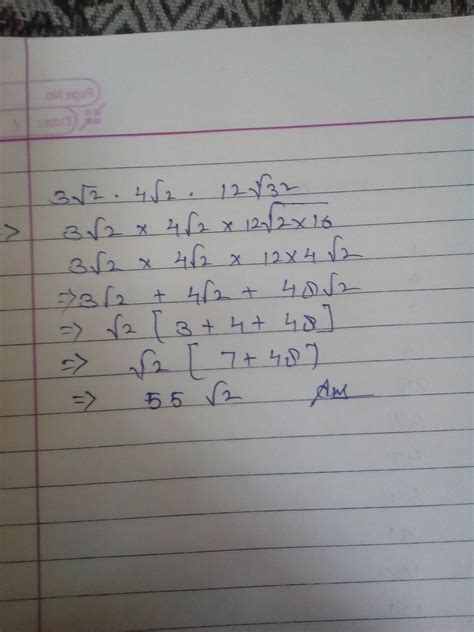 Page No.
Date:
3√2 . 4√2 . 12√32
=> 3√2 × 4√2 × 12√2×16
3√2 × 4√2 × 12×4√2
=> 3√2 + 4√2 + 48√2
=> √2 [3 + 4 + 48]
=> √2 [7 + 48)
=> 55 √2 Ans